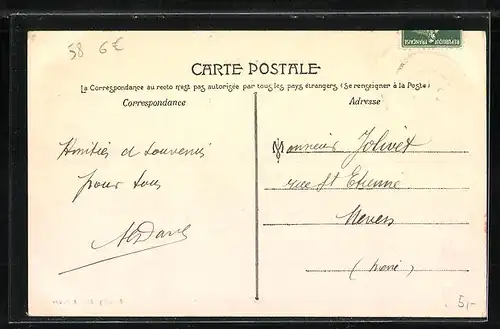 58 6€
REPUBLIQUE FRANÇAISE
CARTE POSTALE
La Correspondance au recto n'est pas autorisée par tous les pays étrangers (Se renseigner à la Poste)
Correspondance
Adresse
Amitiés et souvenirs
pour tous
Monsieur Jolivet
rue St Etienne
Nevers
5,-